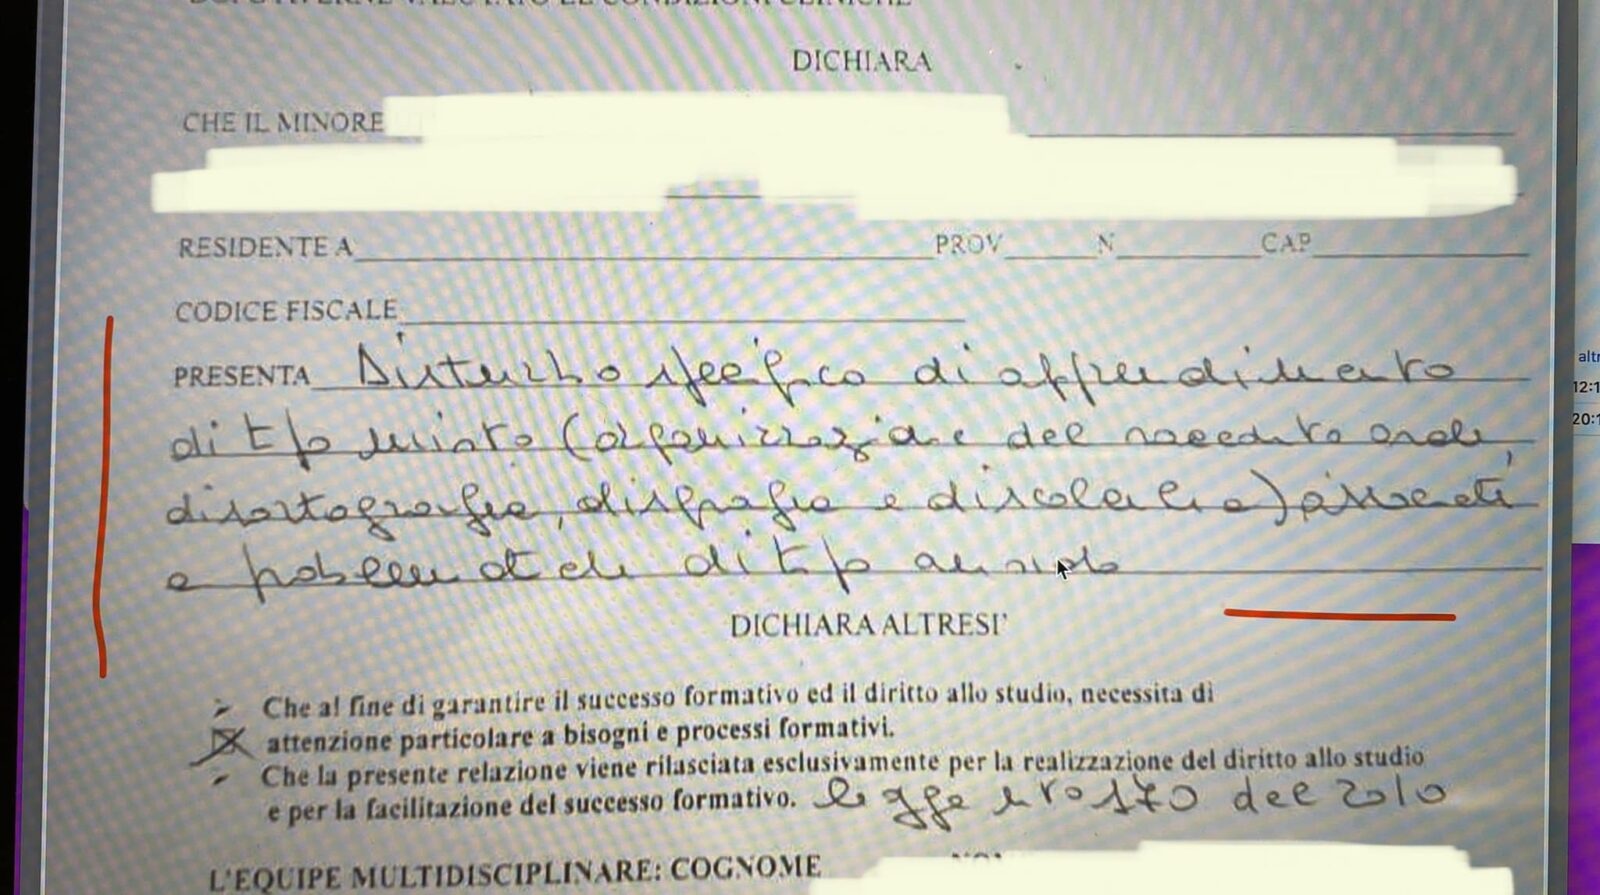 DOPO AVERNE VALUTATO LE CONDIZIONI CLINICHE
DICHIARA
CHE IL MINORE
RESIDENTE A PROV N CAP
CODICE FISCALE
PRESENTA Disturbo specifico di apprendimento
di tipo misto (organizzazione del racconto orale,
disortografia, disgrafia e discalculia) associati
a problematiche di tipo ansioso
DICHIARA ALTRESI'
➢ Che al fine di garantire il successo formativo ed il diritto allo studio, necessita di
attenzione particolare a bisogni e processi formativi.
➢ Che la presente relazione viene rilasciata esclusivamente per la realizzazione del diritto allo studio
e per la facilitazione del successo formativo. legge nro 170 del 2010
L'EQUIPE MULTIDISCIPLINARE: COGNOME
altr
12:1
20:1